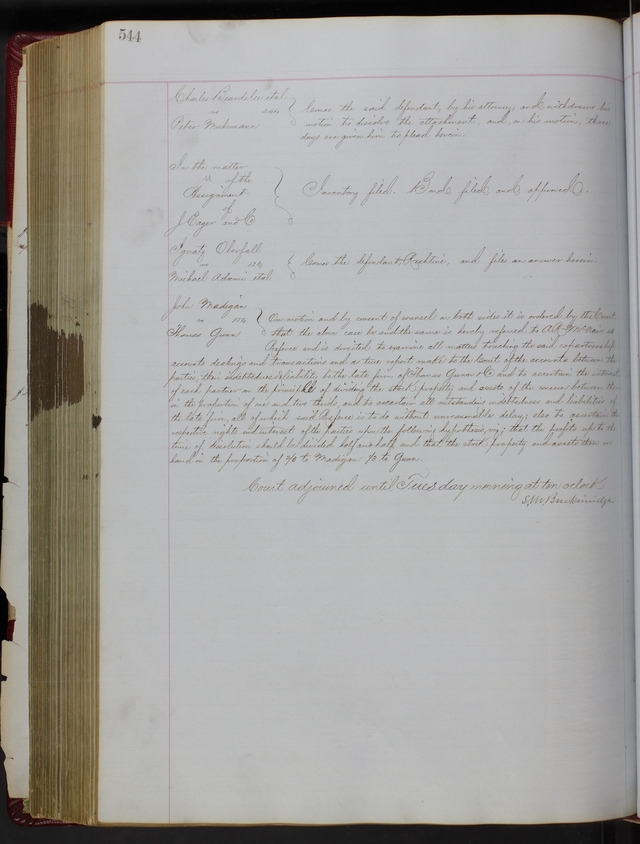 544
Charles et al
vs
Peter
Comes the said defendant, by his attorney, and withdraws his
motion to dissolve the attachment, and, on his motion, three
days are given him to plead herein.
In the matter
of the
Assignment
of
J. Eager and Co
Inventory filed. Bond filed and approved.
Ignatz Oberfall
vs
Michael Adami et al
Comes the defendant, and files an answer herein.
John Madigan
vs
Thomas Gunn
On motion and by consent of counsel on both sides it is ordered by the Court
that the above case be and the same is hereby referred to
Referee and is directed to examine all matters touching the said copartnership
accounts dealings and transactions and a true report make to the Court of the accounts between the
parties, their indebtedness & liability to the late firm of Thomas Gunn & Co and to ascertain the interest
of said parties on the principle of dividing the stock, property and assets of the concern between them
in the proportion of one and two thirds, and to ascertain all outstanding indebtedness and liabilities of
the late firm, all of which said Referee is to do without unreasonable delay; also to ascertain the
respective rights and interest of the parties upon the following hypothesis, viz; that the profits up to the
time of dissolution should be divided half and half and that the stock, property and assets then on
hand in the proportion of to Madigan to Gunn.
Court adjourned until Tuesday morning at ten oclock
S. M. Breckinridge